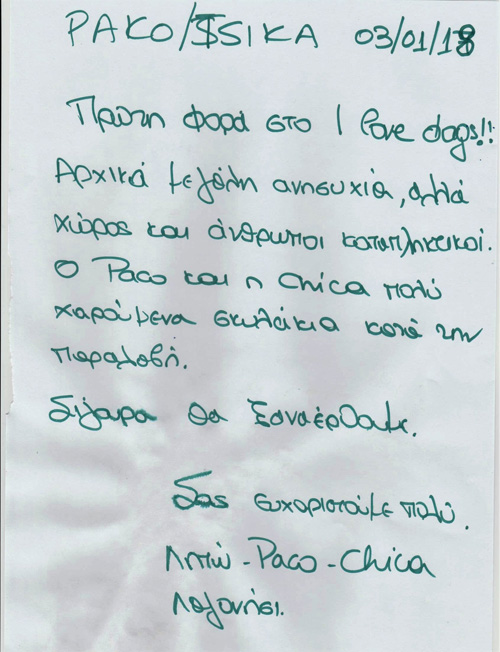 PAKO/SSIKA 03/01/18
Πρώτη φορά στο I love dogs!!
Αρχικά μεγάλη ανησυχία, αλλά
χώρος και άνθρωποι καταπληκτικοί.
Ο Paco και η Chica πολύ
χαρούμενα σκυλάκια κατά την
παραλαβή.
Σίγουρα θα ξαναέρθουμε.
Σας ευχαριστούμε πολύ.
Λητώ - Paco - Chica
Λαγονήσι.